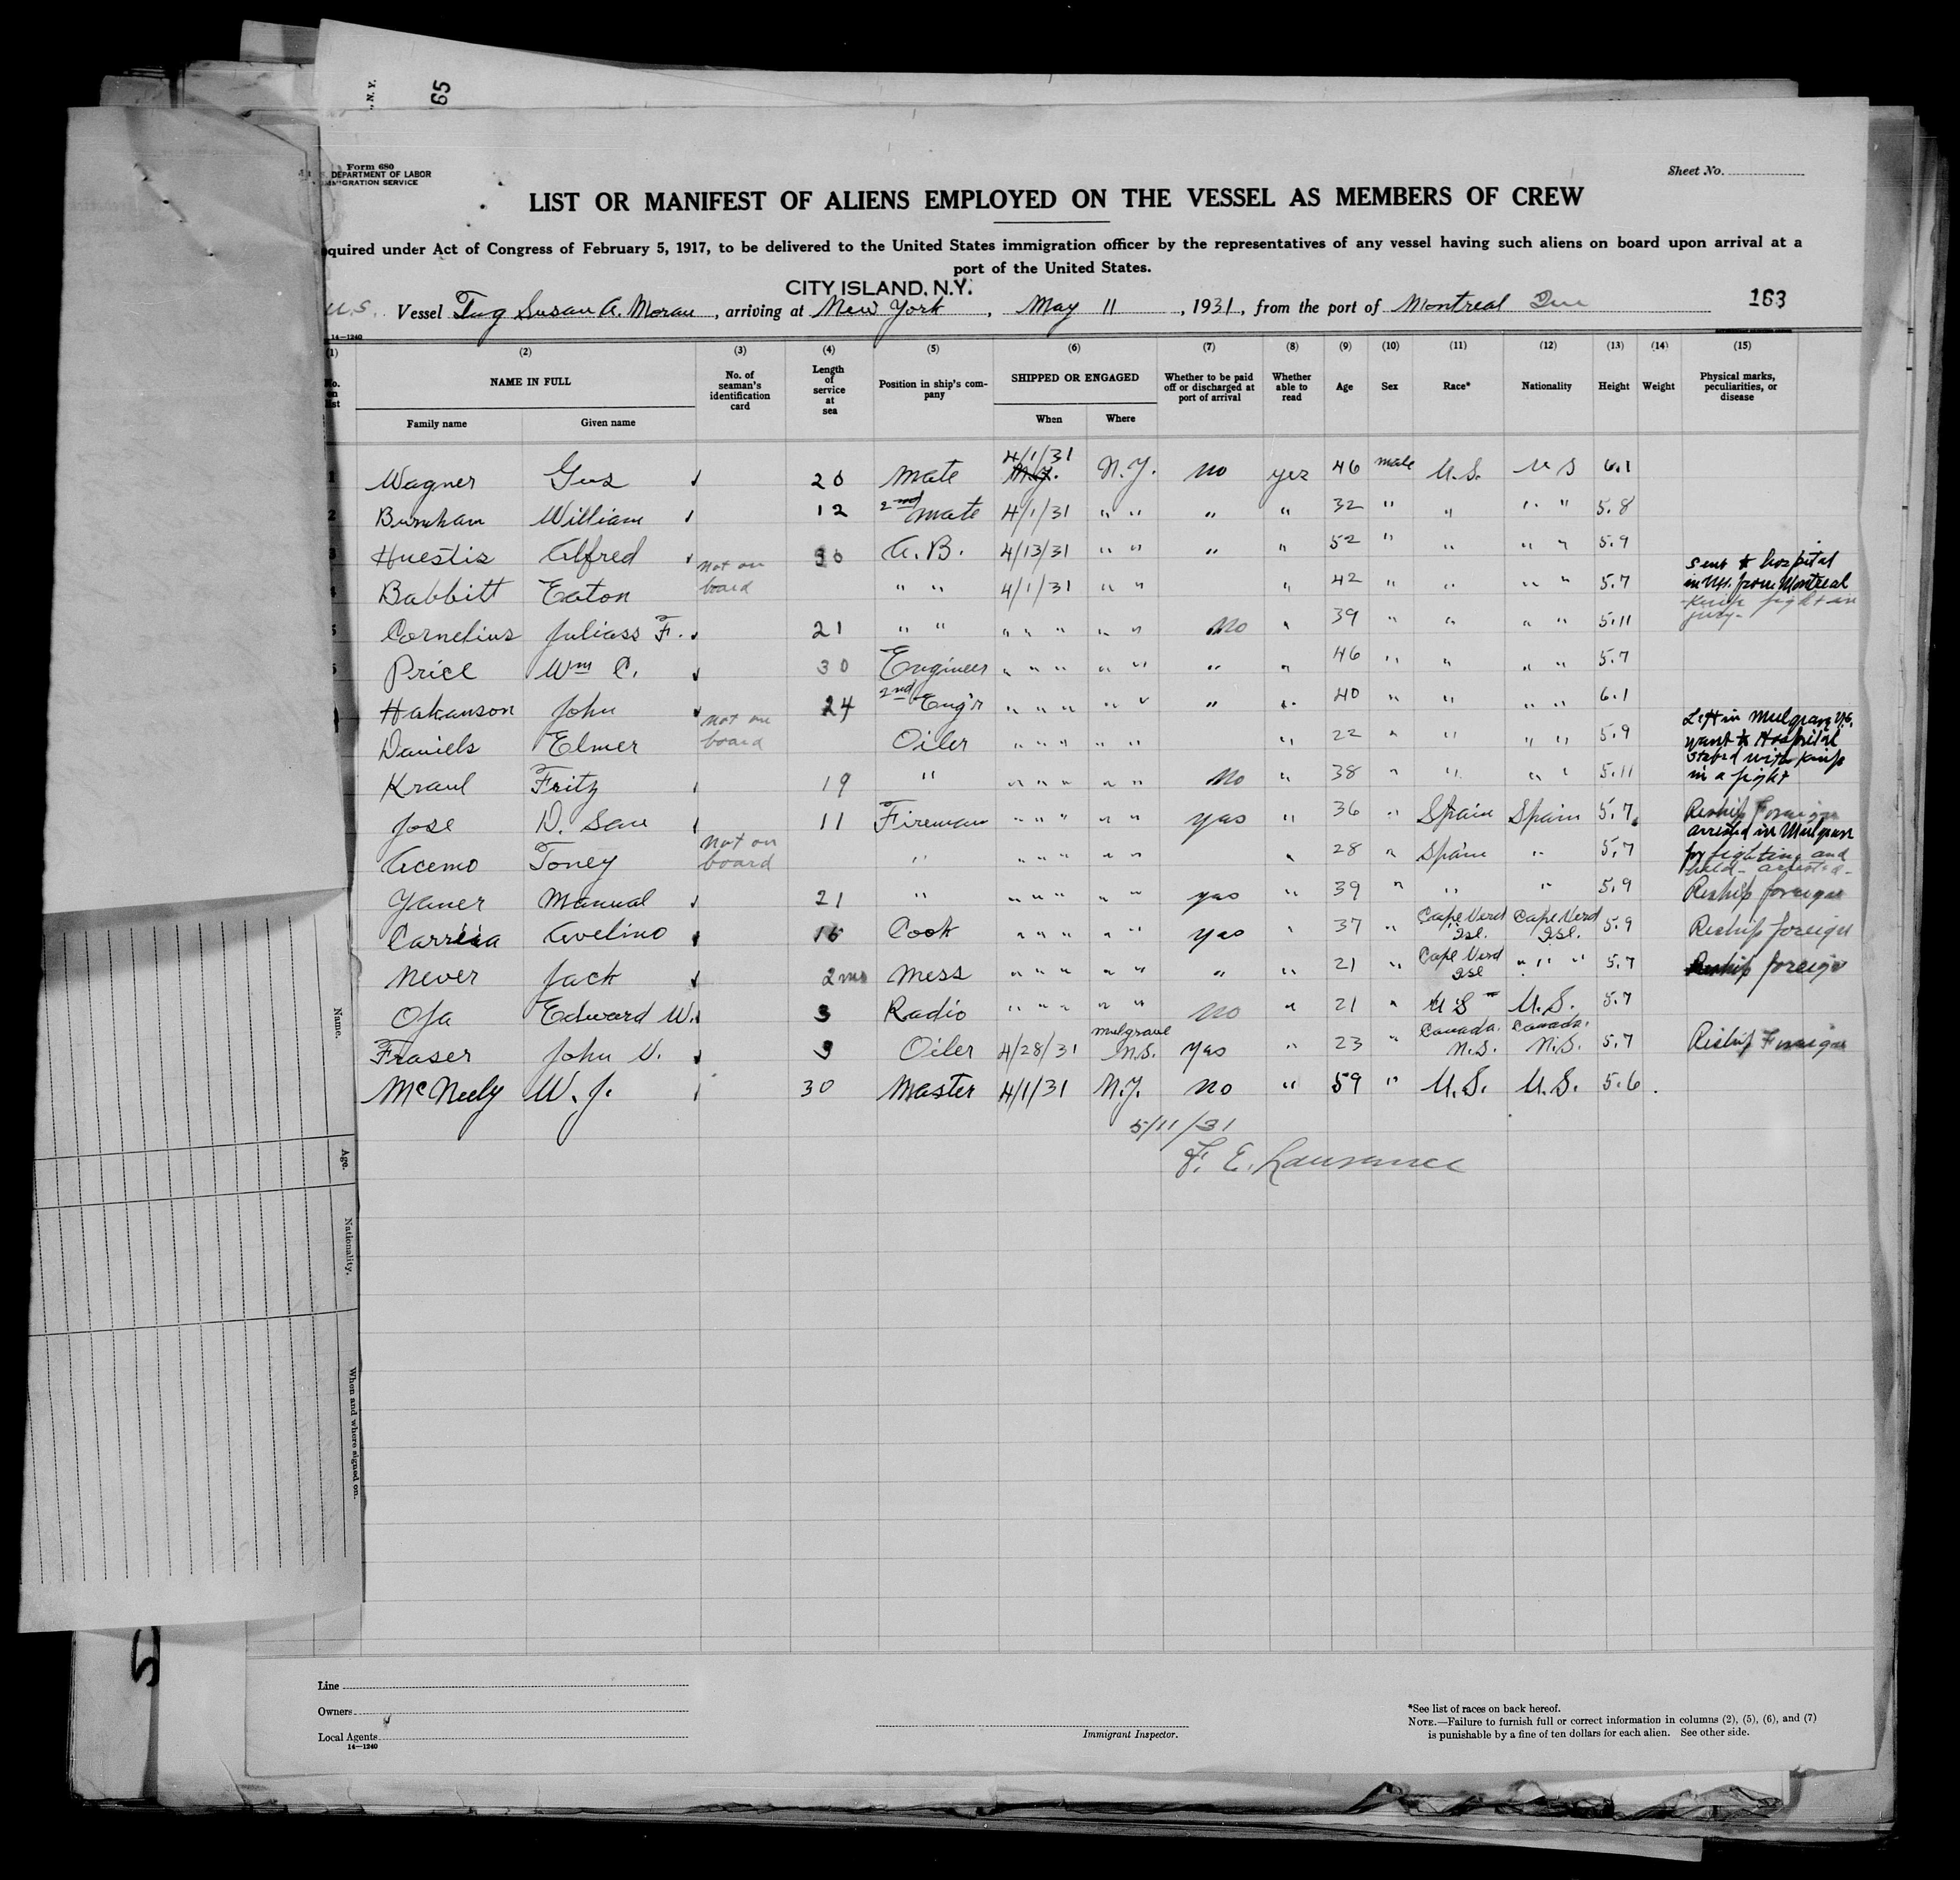 , N. Y.
65
Form 680
DEPARTMENT OF LABOR
IMMIGRATION SERVICE
Sheet No.
LIST OR MANIFEST OF ALIENS EMPLOYED ON THE VESSEL AS MEMBERS OF CREW
quired under Act of Congress of February 5, 1917, to be delivered to the United States immigration officer by the representatives of any vessel having such aliens on board upon arrival at a
port of the United States.
CITY ISLAND, N.Y.
U.S. Vessel Tug Susan A. Moran, arriving at New York, May 11, 1931, from the port of Montreal Que 163
14—1240
(1) (2) (3) (4) (5) (6) (7) (8) (9) (10) (11) (12) (13) (14) (15)
No. on list NAME IN FULL No. of seaman's identification card Length of service at sea Position in ship's company SHIPPED OR ENGAGED Whether to be paid off or discharged at port of arrival Whether able to read Age Sex Race* Nationality Height Weight Physical marks, peculiarities, or disease
Family name Given name When Where
1 Wagner Gus 20 Mate 4/1/31 N.Y. N.Y. no yes 46 male U.S. U S 6.1
2 Burnham William 12 2nd Mate 4/1/31 " " " " 32 " " " " 5.8
3 Huestis Alfred 30 A.B. 4/13/31 " " " " 52 " " " " 5.9
4 Babbitt Eaton not on board " " 4/1/31 " " " 42 " " " " 5.7 sent to hospital in NY. from Montreal Knife fight injury-
5 Cornelius Juliass F. 21 " " " " " " " No " 39 " " " " 5.11
6 Price Wm C. 30 Engineer " " " " " " " 46 " " " " 5.7
Hakanson John 24 2nd Eng'r " " " " " " " 40 " " " " 6.1
Daniels Elmer not on board Oiler " " " " " " 22 " " " " 5.9 Left in Mulgrave N.S. want to Hospital stabed with knife in a fight
Kraul Fritz 19 " " " " " " No " 38 " " " " 5.11
Jose D. San 11 Fireman " " " " " yas " 36 " Spain Spain 5.7 Reship Foreign
Acemo Toney not on board " " " " " " " 28 " Spain " 5.7 arrested in Mulgrave for fighting and held - arrested -
Yaner Manual 21 " " " " " " yas " 39 " " " 5.9 Reship foreign
Carreia Avelino 16 Cook " " " " " yas " 37 " Cape Verd Isl. Cape Verd Isl. 5.9 Reship foreign
Never Jack 2 mos Mess " " " " " " " 21 " Cape Verd Isl " " " 5.7 Reship foreign
Oja Edward W. 3 Radio " " " " " No " 21 " U S U.S. 5.7
Fraser John D. 9 Oiler 4/28/31 Mulgrave N.S. yas " 23 " Canada. N.S. Canada. N.S. 5.7 Reship Foreign
McNeely W. J. 30 Master 4/1/31 N.Y. no " 59 " U.S. U.S. 5.6
5/11/31
F. E. Lawrance
Name.
Age.
Nationality.
When and where signed on.
5
Line
Owners
Local Agents
14—1240
Immigrant Inspector.
*See list of races on back hereof.
NOTE.—Failure to furnish full or correct information in columns (2), (5), (6), and (7)
is punishable by a fine of ten dollars for each alien. See other side.